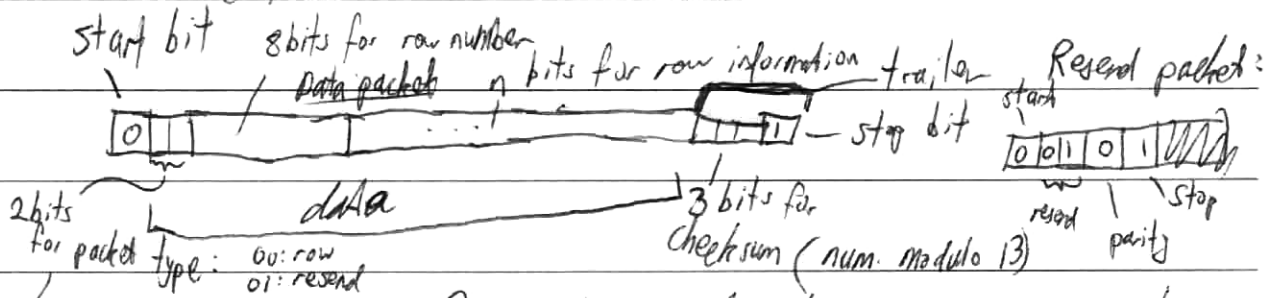 start bit
8bits for row number
n bits for row information
trailer
Resend packet:
Data packet
start
0
...
1
stop bit
0 0 1 0 1
2 bits
for packet type:
00: row
01: resend
data
3 bits for
checksum (num. modulo 13)
resend
parity
stop